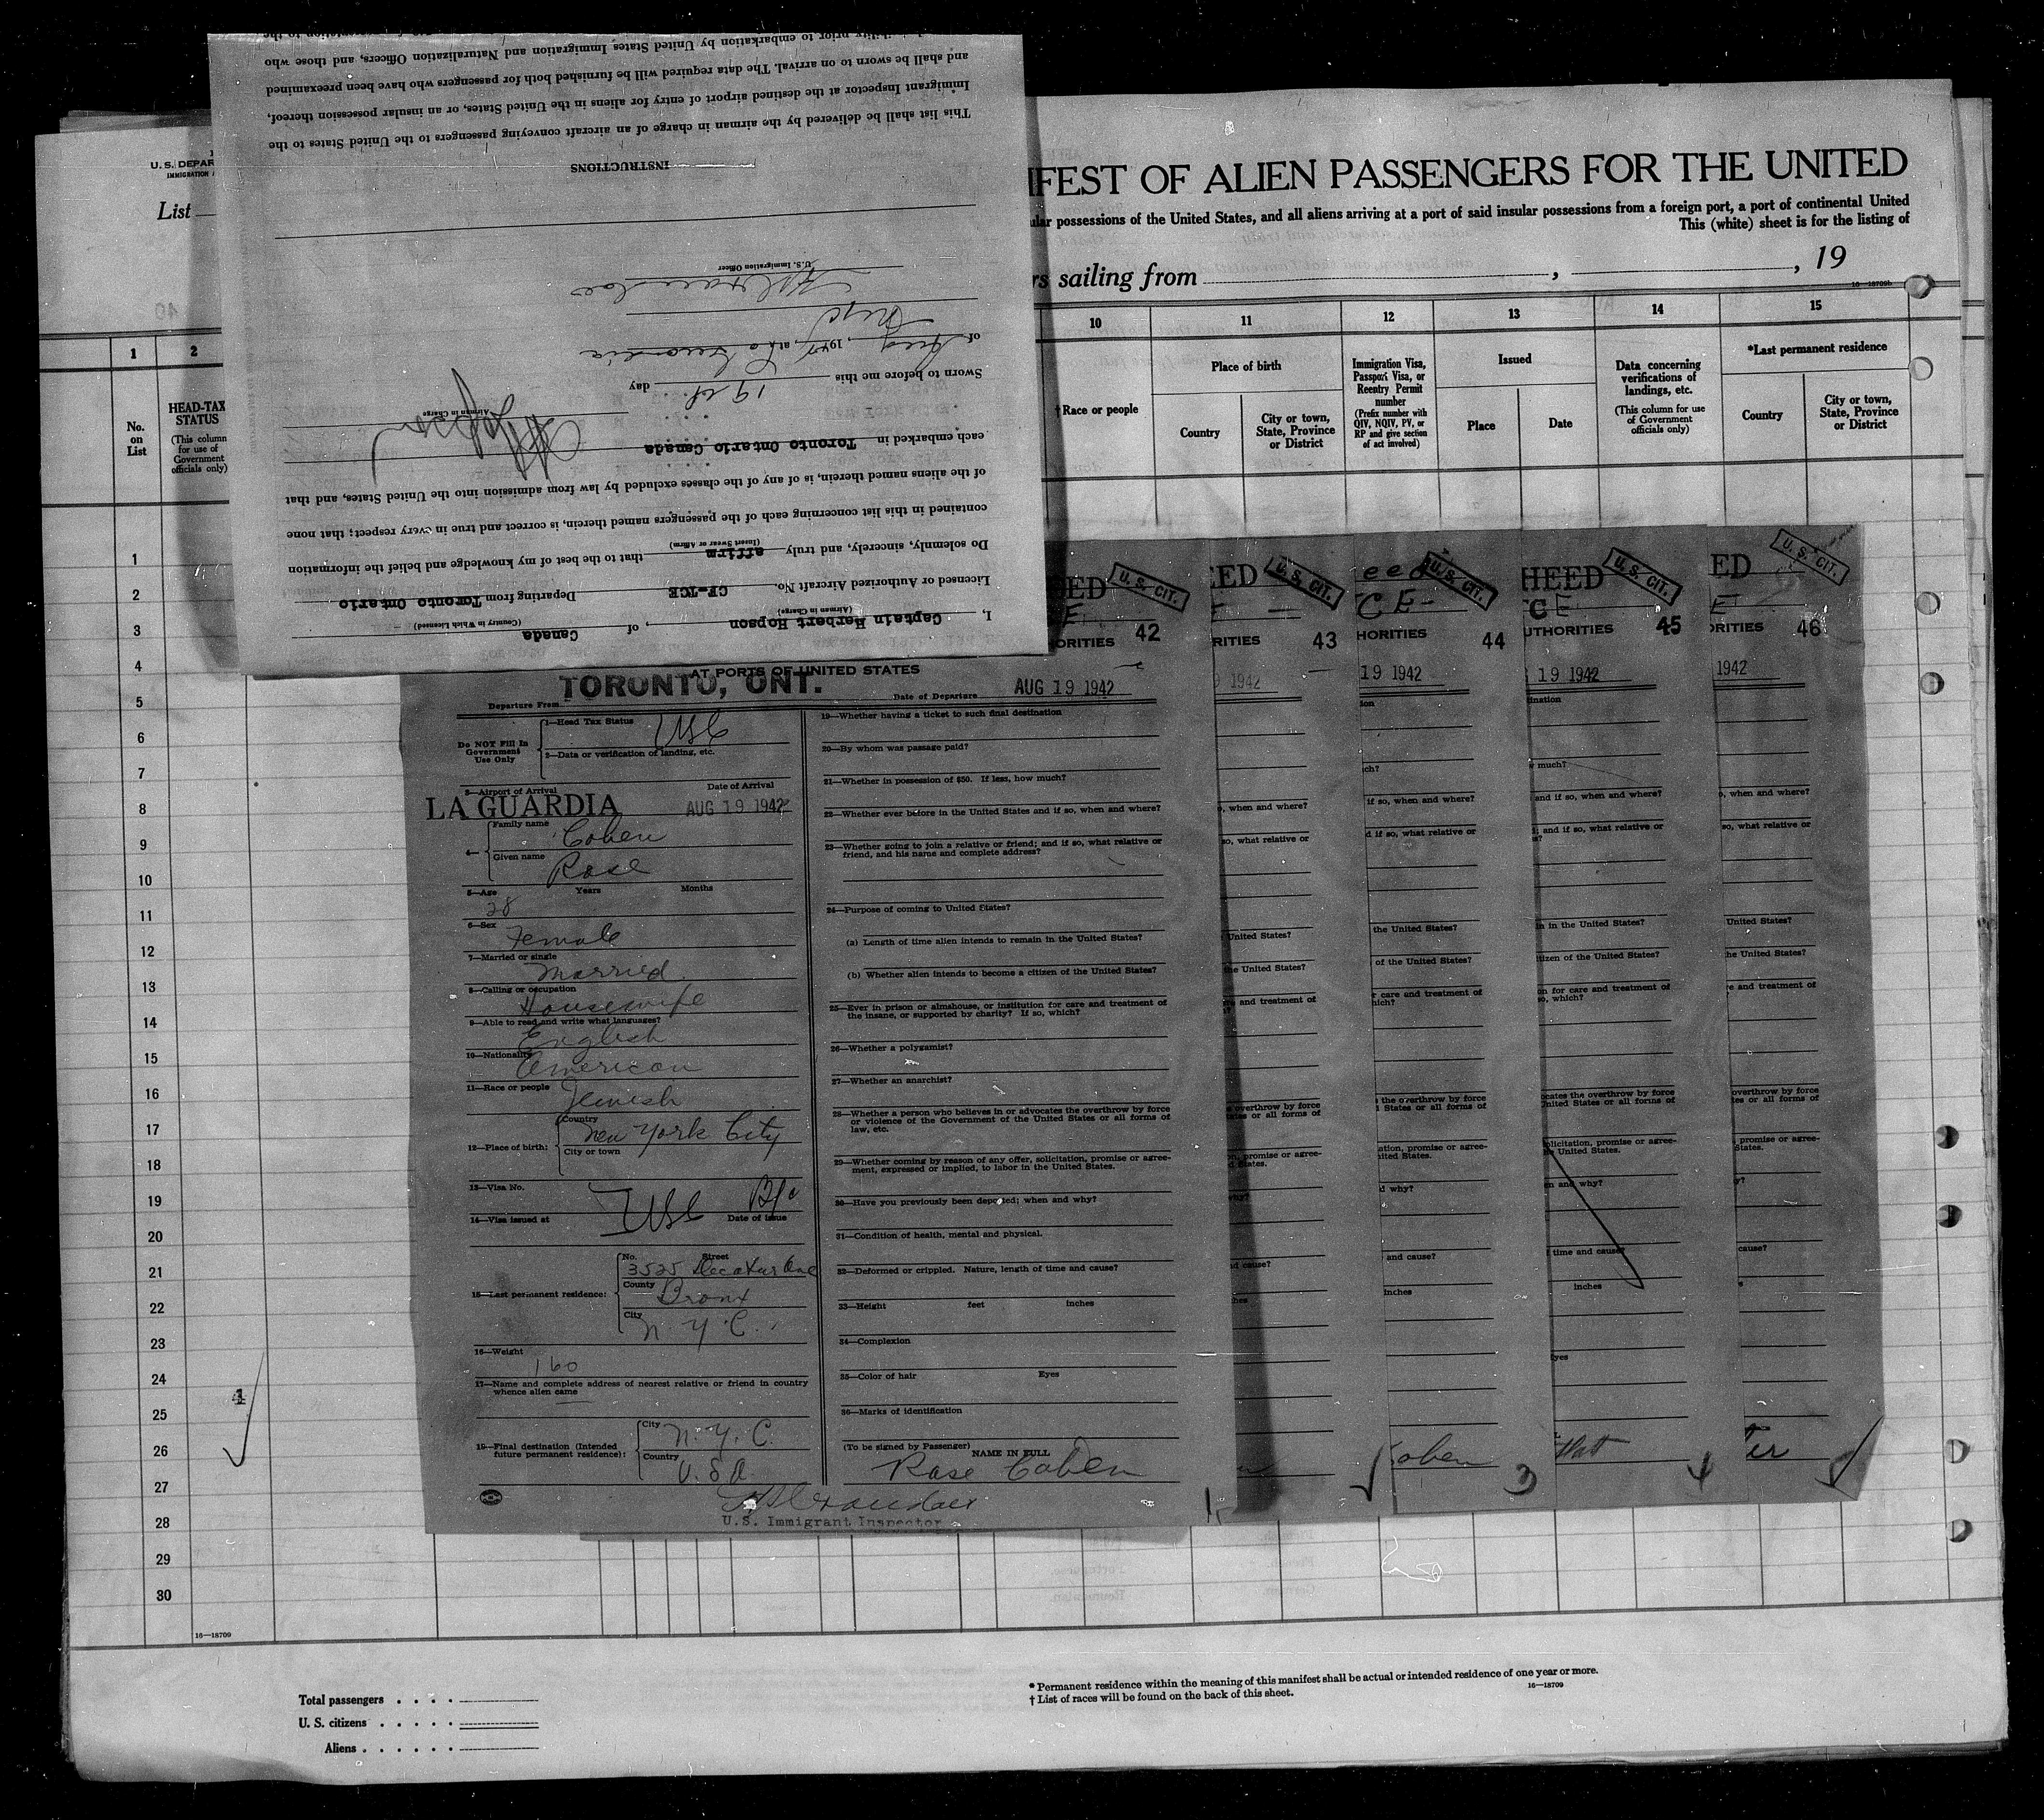 U.S. DEPAR
IMMIGRATION
List
IFEST OF ALIEN PASSENGERS FOR THE UNITED
lar possessions of the United States, and all aliens arriving at a port of said insular possessions from a foreign port, a port of continental United
This (white) sheet is for the listing of
rs sailing from , , 19
16—18709b
1 2 10 11 12 13 14 15
No. on List
HEAD-TAX STATUS
(This column for use of Government officials only)
†Race or people
Place of birth
Country
City or town, State, Province or District
Immigration Visa, Passport Visa, or Reentry Permit number
(Prefix number with QIV, NQIV, PV, or RP and give section of act involved)
Issued
Place
Date
Data concerning verifications of landings, etc.
(This column for use of Government officials only)
*Last permanent residence
Country
City or town, State, Province or District
I, Captain Herbert Hopson, of Canada
(Airman in Charge) (Country in Which Licensed)
Licensed or Authorized Aircraft No. CF-TCE Departing from Toronto Ontario
Do solemnly, sincerely, and truly affirm that to the best of my knowledge and belief the information
(Insert Swear or Affirm)
contained in this list concerning each of the passengers named therein, is correct and true in every respect; that none
of the aliens named therein, is of any of the classes excluded by law from admission into the United States, and that
each embarked in Toronto Ontario Canada
Airman in Charge
Sworn to before me this 19th day
of Aug, 194, at La Guardia
U.S. Immigration Officer
INSTRUCTIONS
This list shall be delivered by the airman in charge of an aircraft conveying passengers to the United States to the
Immigrant Inspector at the destined airport of entry for aliens in the United States, or an insular possession thereof,
and shall be sworn to on arrival. The data required will be furnished both for passengers who have been preexamined
prior to embarkation by United States Immigration and Naturalization Officers, and those who
ED U. S. CIT.
E
ORITIES 42
AT PORTS OF UNITED STATES
Departure From TORONTO, ONT. Date of Departure AUG 19 1942
Do NOT Fill In Government Use Only
1—Head Tax Status USC
2—Data or verification of landing, etc.
3—Airport of Arrival Date of Arrival
LA GUARDIA AUG 19 1942
4— Family name Cohen
Given name Rose
5—Age Years Months
28
6—Sex
Female
7—Married or single
Married
8—Calling or occupation
Housewife
9—Able to read and write what languages?
English
10—Nationality
American
11—Race or people
Jewish
12—Place of birth: Country
New York City
City or town
13—Visa No.
14—Visa issued at USC Date of issue
15—Last permanent residence: No. Street
3525 Decatur Ave
County
Bronx
City
N. Y. C.
16—Weight
160
17—Name and complete address of nearest relative or friend in country
whence alien came
18—Final destination (Intended future permanent residence):
City N. Y. C.
Country U. S. A.
U.S. Immigrant Inspector
19—Whether having a ticket to such final destination
20—By whom was passage paid?
21—Whether in possession of $50. If less, how much?
22—Whether ever before in the United States and if so, when and where?
23—Whether going to join a relative or friend; and if so, what relative or
friend, and his name and complete address?
24—Purpose of coming to United States?
(a) Length of time alien intends to remain in the United States?
(b) Whether alien intends to become a citizen of the United States?
25—Ever in prison or almshouse, or institution for care and treatment of
the insane, or supported by charity? If so, which?
26—Whether a polygamist?
27—Whether an anarchist?
28—Whether a person who believes in or advocates the overthrow by force
or violence of the Government of the United States or all forms of
law, etc.
29—Whether coming by reason of any offer, solicitation, promise or agree-
ment, expressed or implied, to labor in the United States.
30—Have you previously been deported; when and why?
31—Condition of health, mental and physical.
32—Deformed or crippled. Nature, length of time and cause?
33—Height feet inches
34—Complexion
35—Color of hair Eyes
36—Marks of identification
(To be signed by Passenger) NAME IN FULL
Rose Cohen
EED U. S. CIT.
RITIES 43
1942
U. S. CIT.
CE-
HORITIES 44
19 1942
HEED U. S. CIT.
CE
UTHORITIES 45
19 1942
ED U. S. CIT.
E
ORITIES 46
1942
3
4
1
2
3
4
5
6
7
8
9
10
11
12
13
14
15
16
17
18
19
20
21
22
23
24
25
26
27
28
29
30
16—18709
Total passengers . . . .
U. S. citizens . . . . .
Aliens . . . . . .
* Permanent residence within the meaning of this manifest shall be actual or intended residence of one year or more.
† List of races will be found on the back of this sheet.
16—18709